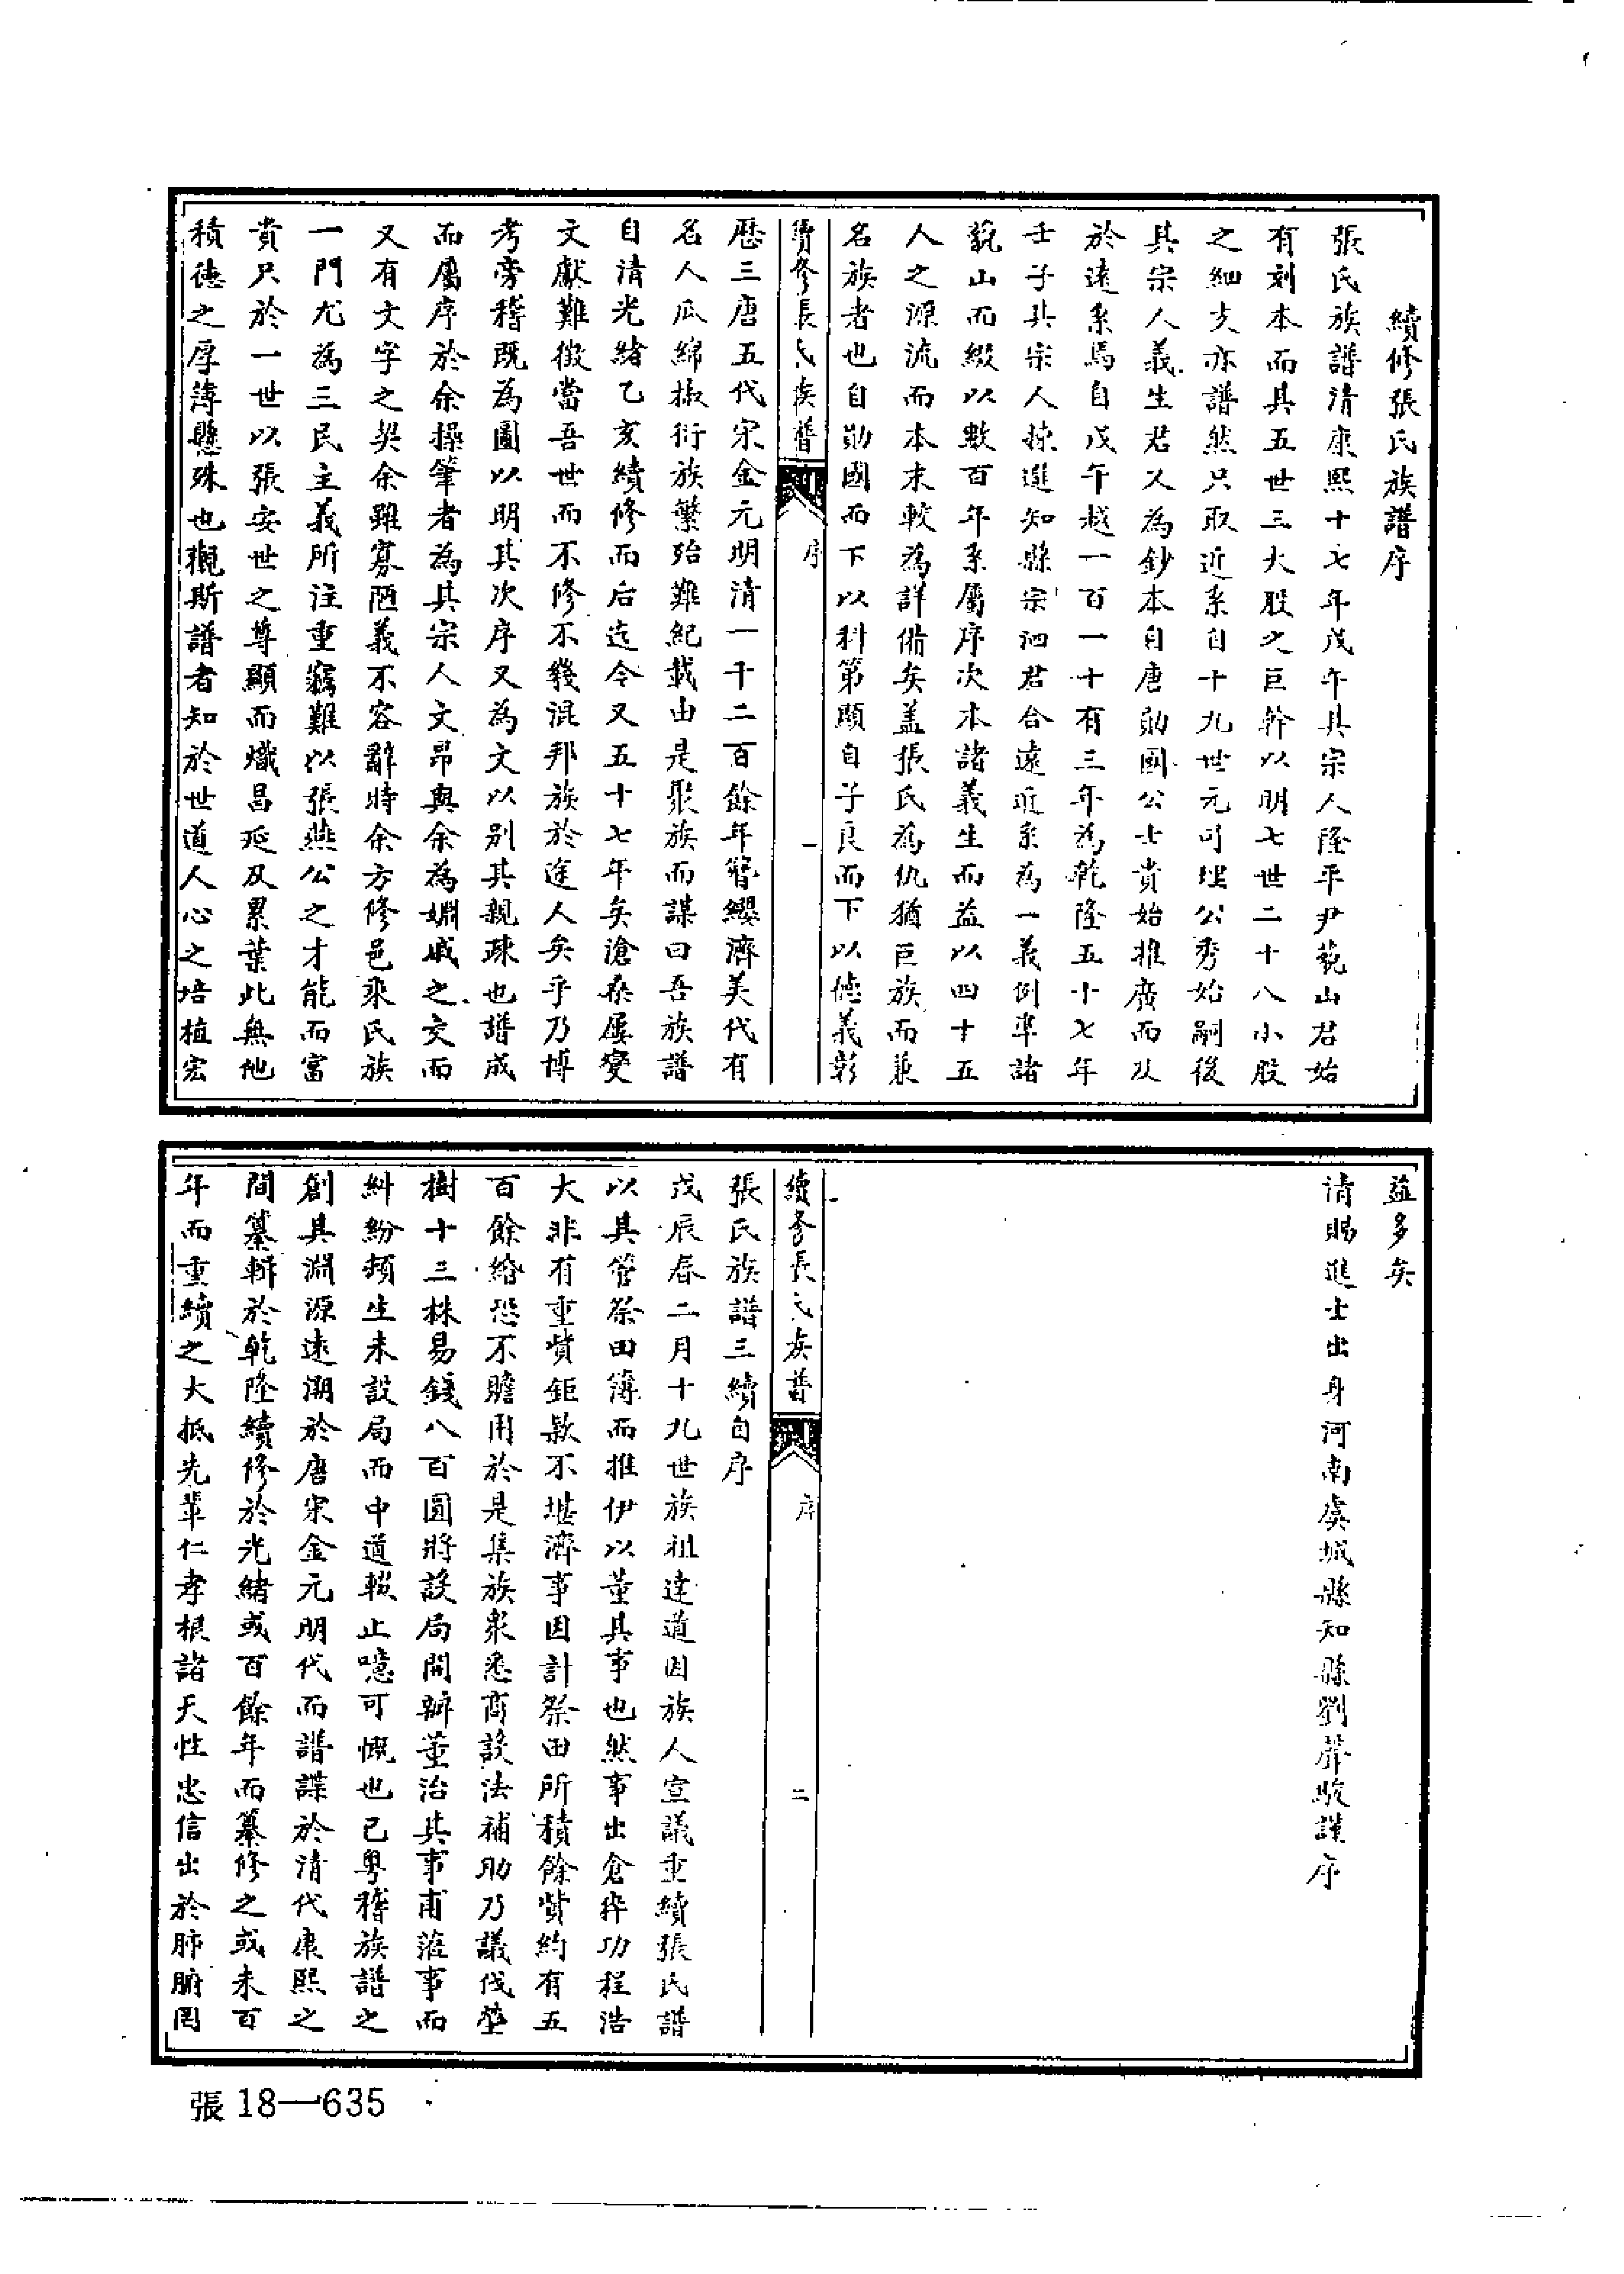 續修張氏族譜序
張氏族譜清康熙十七年戊午其宗人隆平尹藐山君始
有刻本而其五世三大股之巨幹以明七世二十八小股
之細支亦譜然只取近系自十九世元可埋公秀始嗣後
其宗人義生君又為鈔本自唐勛國公士貴始推廣而以
於遠系焉自戊午越一百一十有三年為乾隆五十七年
壬子其宗人揀選知縣宗泗君合遠近系為一義例準諸
藐山而綴以數百年系屬序次本諸義生而益以四十五
人之源流而本末較為詳備矣盖張氏為仇猶巨族而兼
名族者也自勛國而下以科第顯自子良而下以德義彰
續修張氏族譜 序 一
歷三唐五代宋金元明清一千二百餘年簪纓濟美代有
名人瓜綿椒衍族繁殆難紀載由是聚族而謀曰吾族譜
自清光緒乙亥續修而后迄今又五十七年矣滄桑屢變
文獻難徵當吾世而不修不幾混邦族於途人矣乎乃博
考旁稽既為圖以明其次序又為文以别其親疎也譜成
而屬序於余操筆者為其宗人文昂與余為婣戚之交而
又有文字之契余雖寡陋義不容辭時余方修邑乘氏族
一門尤為三民主義所注重竊難以張燕公之才能而富
貴只於一世以張安世之尊顯而熾昌延及累葉此無他
積德之厚薄懸殊也觀斯譜者知於世道人心之培植宏
益多矣
清賜進士出身河南虞城縣知縣劉聲駿謹序
續修張氏族譜 序 二
張氏族譜三續自序
戊辰春二月十九世族祖達道因族人宣議重續張氏譜
以其管祭田簿而推伊以董其事也然事出倉猝功程浩
大非有重貲鉅款不堪濟事因計祭田所積餘貲約有五
百餘緡恐不贍用於是集族衆悉商設法補助乃議伐塋
樹十三株易錢八百圓將設局開辦董治其事甫蒞事而
糾紛頻生未設局而中道輟止噫可慨也已粵稽族譜之
創其淵源遠溯於唐宋金元明代而譜諜於清代康熙之
間纂輯於乾隆續修於光緒或百餘年而纂修之或未百
年而重續之大抵先輩仁孝根諸天性忠信出於肺腑罔
張18—635